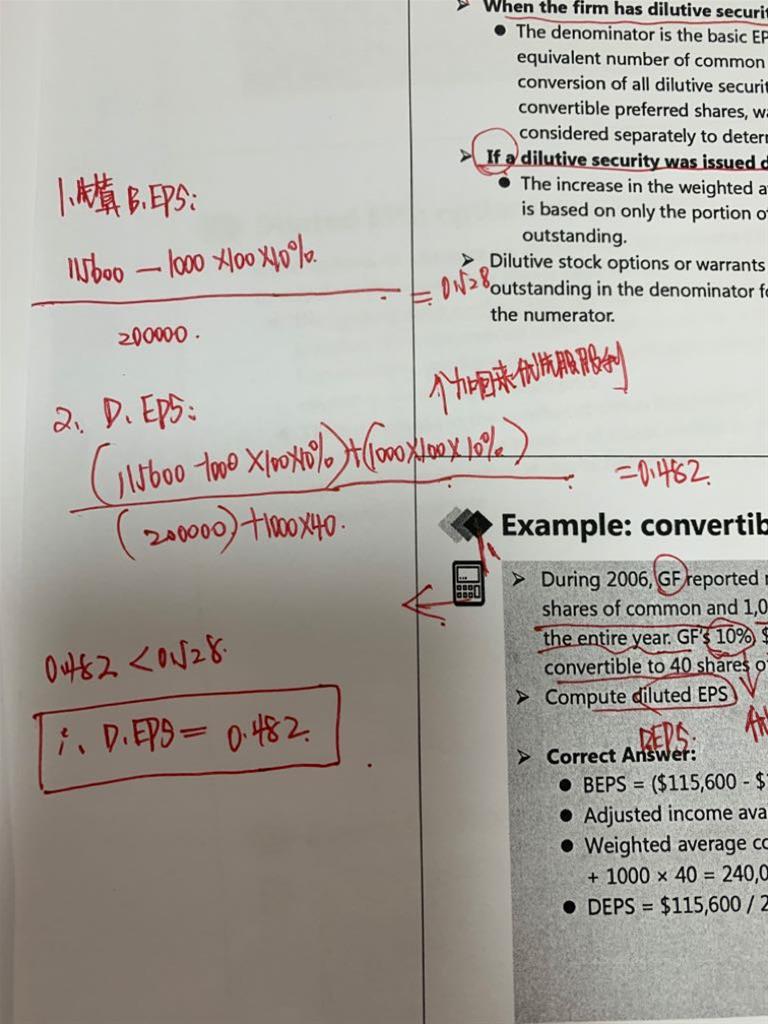 When the firm has dilutive securit
● The denominator is the basic EP
equivalent number of common
conversion of all dilutive securit
convertible preferred shares, wa
considered separately to deter
If a dilutive security was issued d
● The increase in the weighted a
is based on only the portion o
outstanding.
Dilutive stock options or warrants
outstanding in the denominator fo
the numerator.
1.先算 B.EPS:
115600 — 1000 × 100 × 10%
200000.
= 0.528
2. D. EPS:
↑加回来优先股股利
(115600 - 1000 × 100 × 10%) + (1000 × 100 × 10%)
(200000) + 1000 × 40.
= 0.482.
0.482 < 0.528.
∴ D.EPS = 0.482.
Example: convertib
During 2006, GF reported
shares of common and 1,0
the entire year. GF's 10%, $
convertible to 40 shares o
Compute diluted EPS
BEPS:
Correct Answer:
● BEPS = ($115,600 - $
● Adjusted income ava
● Weighted average co
+ 1000 × 40 = 240,0
● DEPS = $115,600 / 2